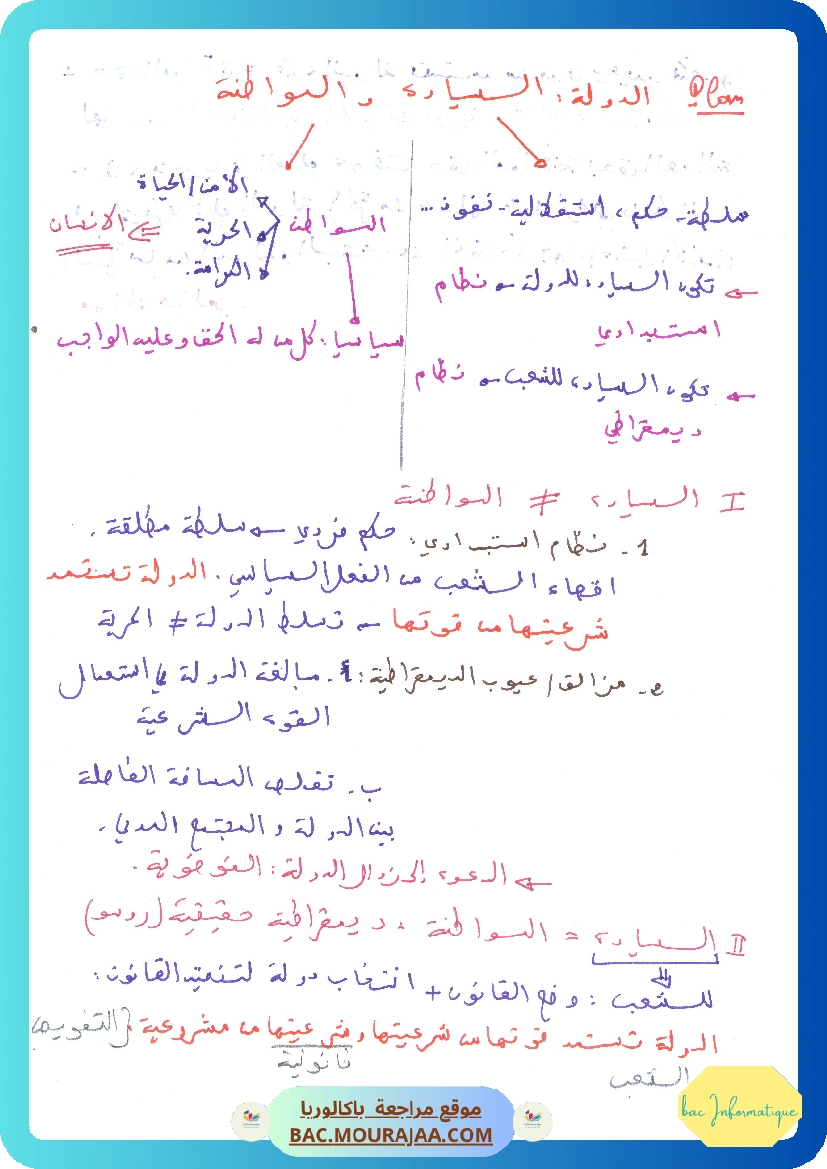 Plan الدولة: السيادة والمواطنة
سلطة - حكم، استقلالية - نفوذ...
← تكون السيادة للدولة ← نظام
استبدادي
← تكون السيادة للشعب ← نظام
ديمقراطي
الأمن/الحياة
المواطنة الحرية ⇐ الإنسان
الكرامة
سياسيا: كل من له الحق وعليه الواجب
I السيادة ≠ المواطنة
1 - نظام استبدادي: حكم فردي ← سلطة مطلقة.
اقصاء الشعب من الفعل السياسي. الدولة تستمد
شرعيتها من قوتها ← تسلط الدولة ≠ الحرية
2 - مزالق/عيوب الديمقراطية: أ - مبالغة الدولة في استعمال
القوة الشرعية
ب - تقلص المسافة الفاصلة
بين الدولة والمجتمع المدني.
← الدعوة إلى زوال الدولة: الفوضوية.
II السيادة = المواطنة: ديمقراطية حقيقية (روسو)
للشعب: وضع القانون + انتخاب دولة لتنفيذ القانون:
الدولة تستمد قوتها من شرعيتها وشرعيتها من مشروعية {التفويض
قانونية
الشعب
bac Informatique
موقع مراجعة باكالوريا
BAC.MOURAJAA.COM